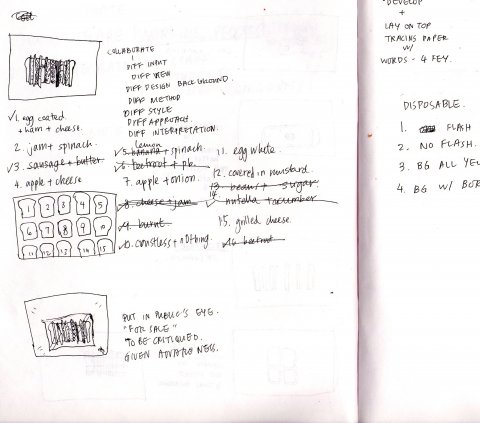 COLLABORATE
DIFF INPUT
DIFF VIEW
DIFF DESIGN BACKGROUND.
DIFF METHOD
DIFF STYLE
DIFF APPROACH.
DIFF INTERPRETATION.
✓1. egg coated.
+ ham + cheese.
2. jam + spinach.
✓3. sausage + butter
4. apple + cheese
lemon
✓5. banana + spinach.
✓6. beetroot + pb.
7. apple + onion.
✓8. cheese + jam
✓9. burnt
✓10. crustless + nothing.
11. egg white.
12. covered in mustard.
13. beans + sugar
14. nutella + cucumber
15. grilled cheese.
16. beetroot
1 2 3 4 5
6 7 8 9 10
11 12 13 14 15
PUT IN PUBLIC'S EYE.
"FOR SALE"
TO BE CRITIQUED.
GIVEN
DEVELOP
+
LAY ON TOP
TRACING PAPER
W/
WORDS - 4 FEY.
DISPOSABLE.
1. FLASH
2. NO FLASH.
3. BG ALL YEL
4. BG W/ BOR